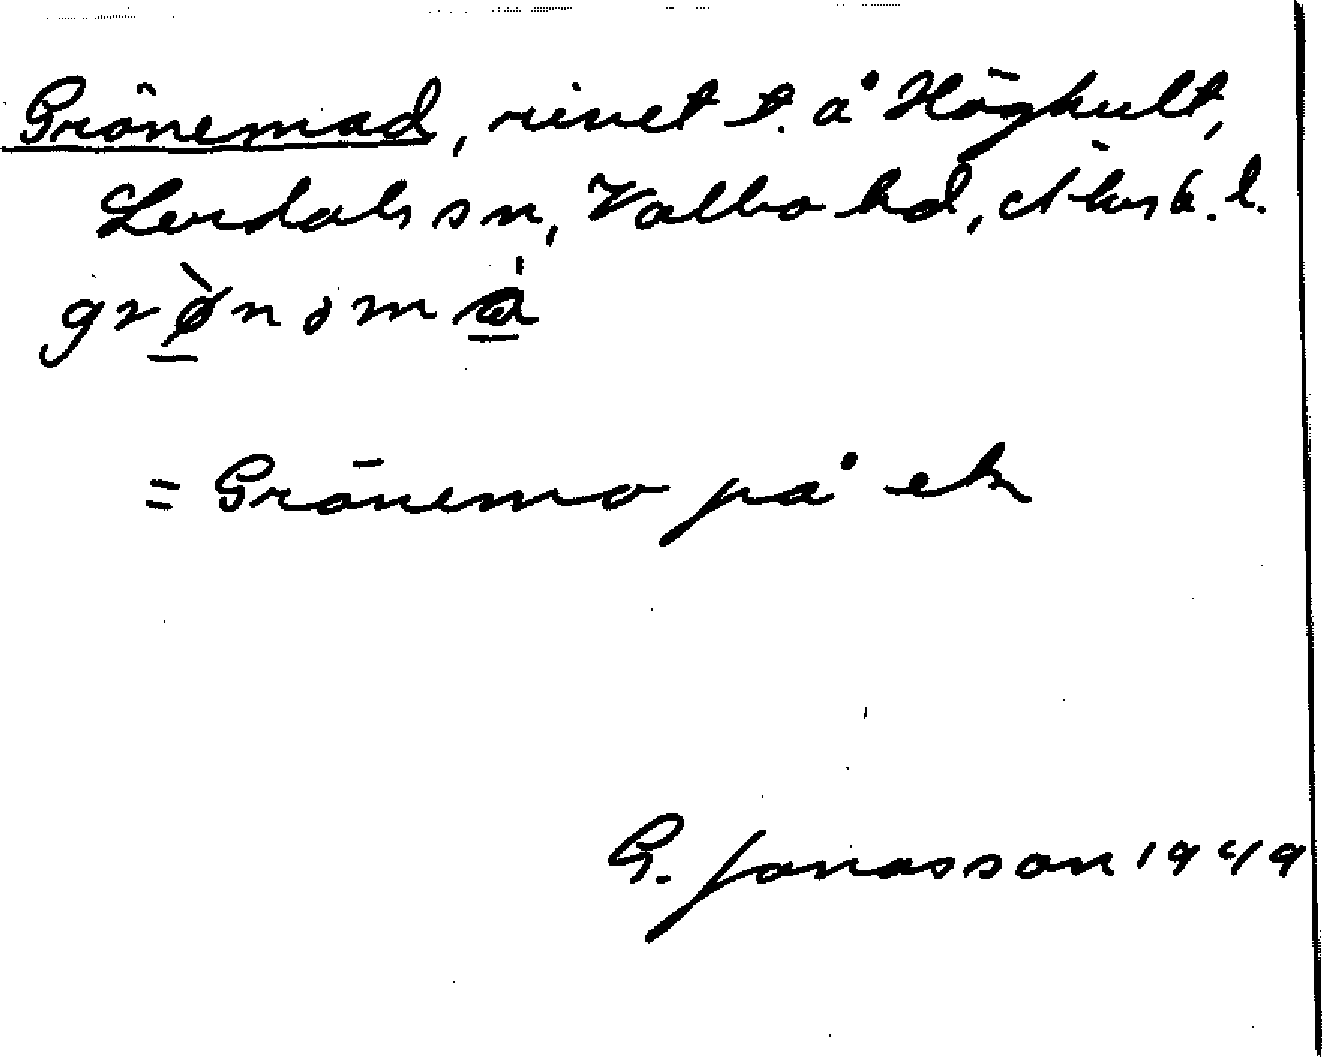 Grönemad, rivet t. å Höghult,
Lerdals sn, Valbo hd, Älvsb. l.
grø̀nəmɑ́
= Grönemo på ek
G. Jonasson 1949